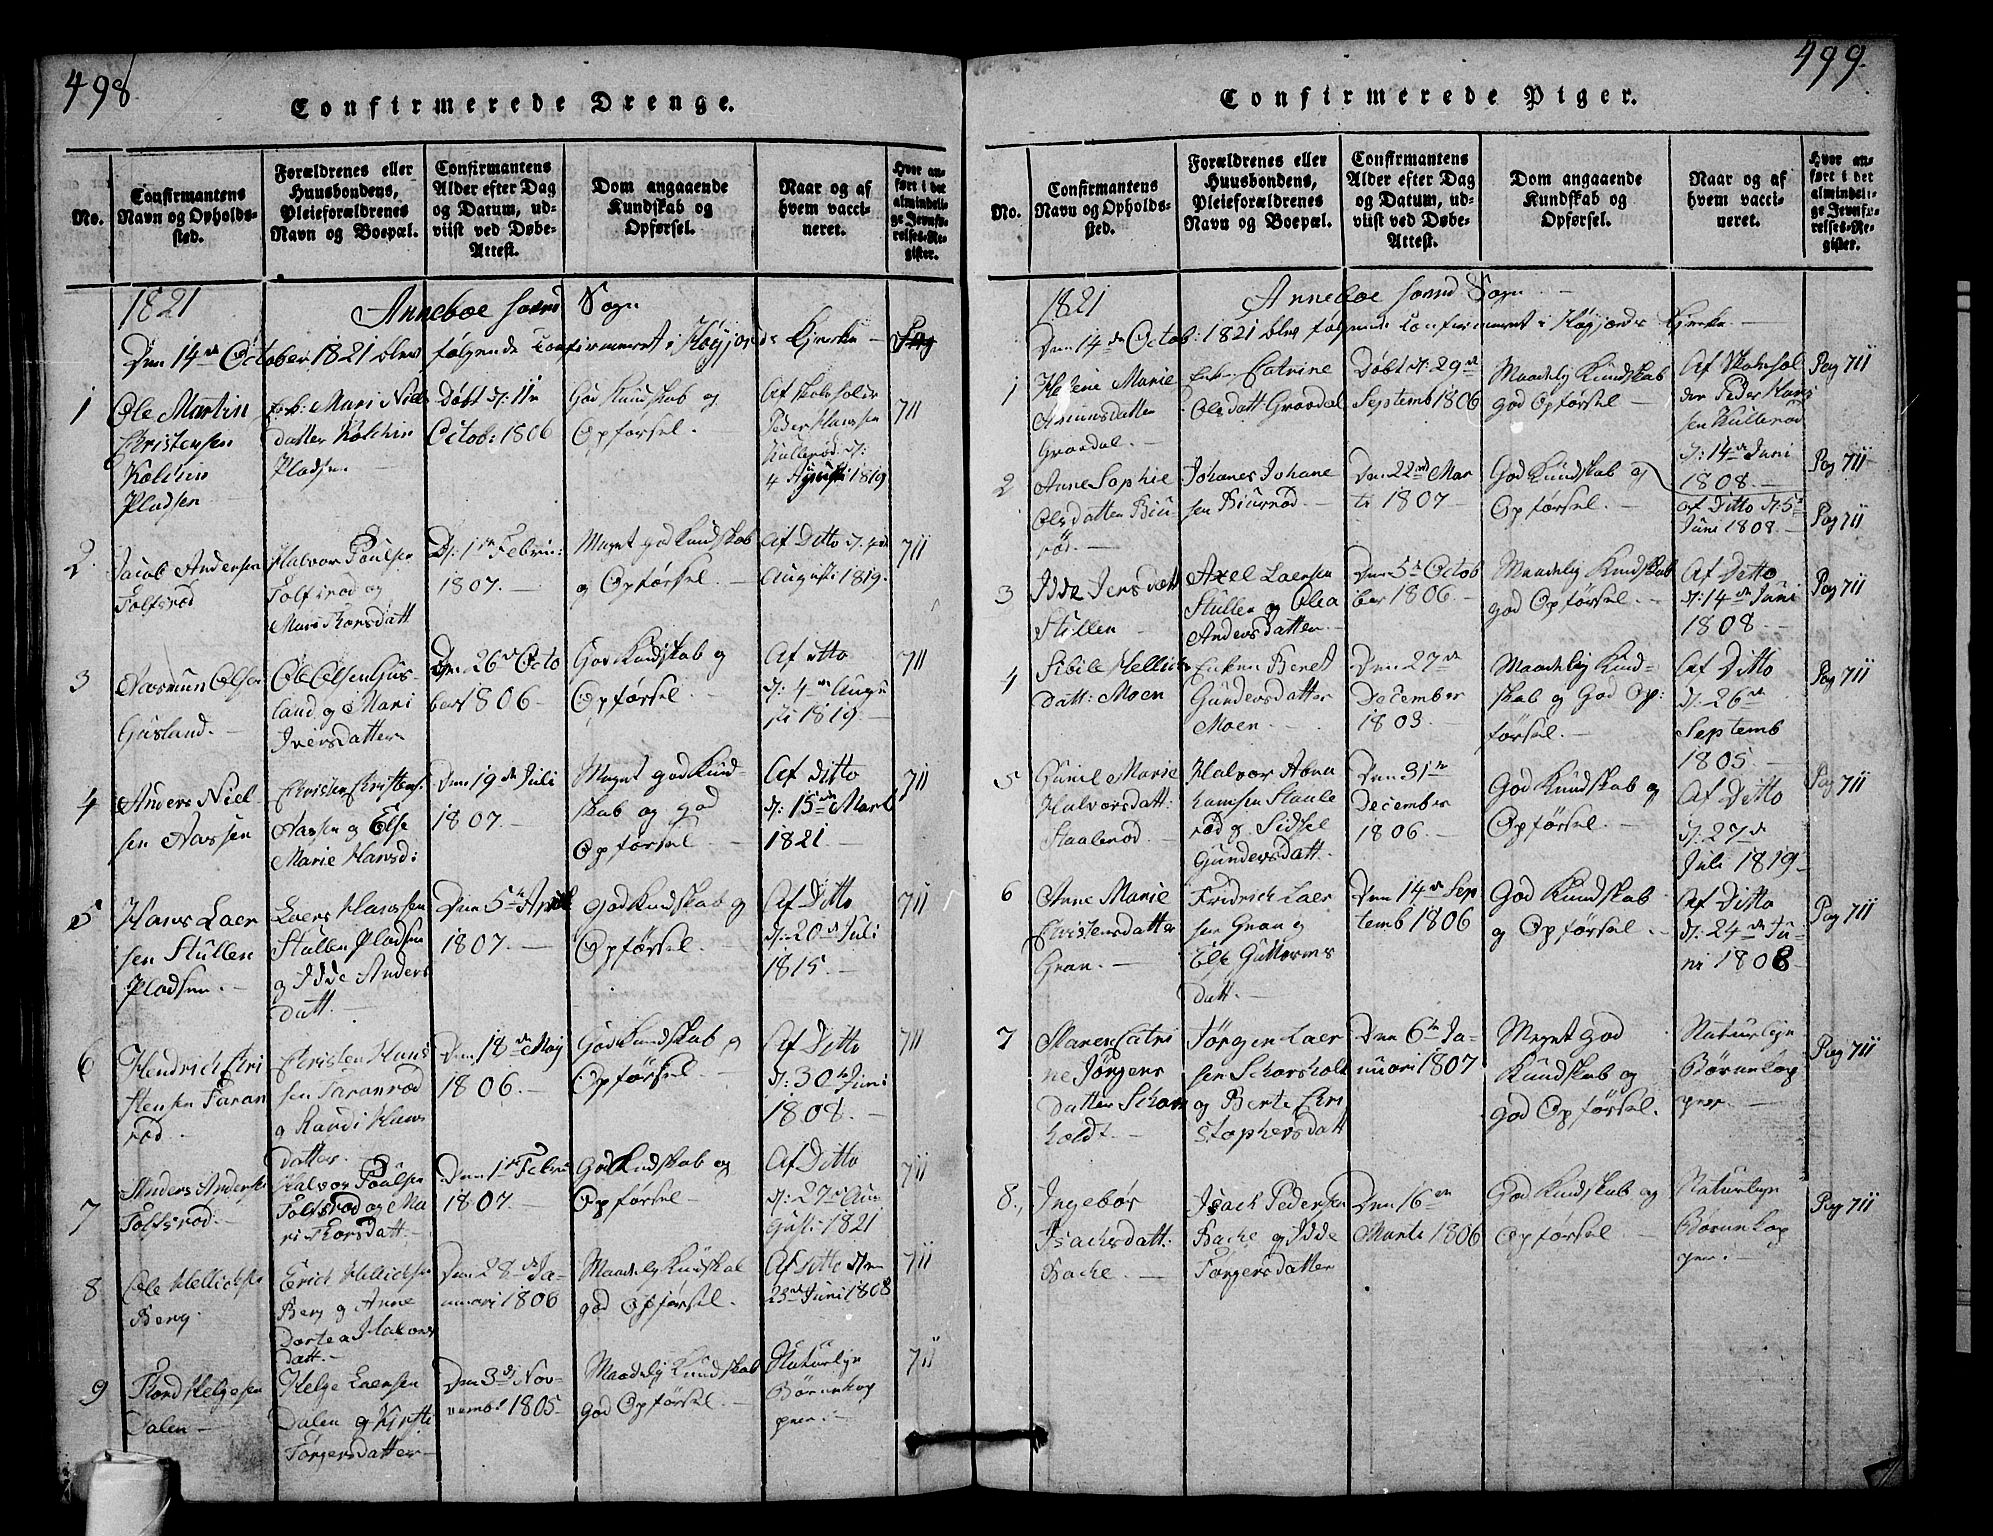 498
Confirmerede Drenge.
No.
Confirmantens
Navn og Opholds-
sted.
Forældrenes eller
Huusbondens,
Pleieforældrenes
Navn og Boepæl.
Confirmantens
Alder efter Dag
og Datum, ud-
viist ved Døbe-
Attest.
Dom angaaende
Kundskab og
Opførsel.
Naar og af
hvem vacci-
neret.
Hvor an-
ført i det
almindeli-
ge Jevnfø-
relses-Re-
gister.
1821 Anneboe Sogn
Den 14de October 1821 blev følgende Confirmeret i Høyjords Kjerke
1
Ole Martin
Christensen
Kolchin
Pladsen
Enk: Mari Niels
datter Kolchin
Pladsen
Døbt d: 11te
Octob: 1806
God Kundskab og
Opførsel.
Af Skoleholder
Peder Hansen
Kullerød d:
4 August 1819
711
2.
Jacob Andersen
Tolfsrød
Halvor Poulsen
Tolfsrød og
Mari Thorsdatt
D: 1te Febru:
1807.
Meget god Kundskab
og Opførsel
Af Ditto d: 4de
Augusti 1819.
711
3
Aasmun Olsen
Gusland.
Ole Olsen Gus-
land og Mari
Iversdatter
Den 26de Octo
ber 1806.
God Kundskab og
Opførsel.
Af ditto
d: 4de Augu
sti 1819.
711
4
Anders Niel
sen Aassen
Christen Christens:
Aassen og Else
Marie Hansd:
Den 19de Juli
1807.
Meget god Kund-
skab og god
Opførsel
Af ditto
d: 15de Mart
1821.
711
5
Hans Laer
sen Stullen
Pladsen.
Laers Hansen
Stullen Pladsen
og Idde Anders
datt.
Den 5te April
1807.
God Kundskab og
Opførsel.
Af Ditto
d: 20de Juli
1815.
711
6
Hendrich Chri
stensen Taran
rød.
Christen Hans
sen Taranrød
og Randi Hans
datter.
Den 18de May
1806.
God Kundskab og
Opførsel.
Af Ditto
d: 30te Juni
1808.
711
7
Anders Andersen
Tolfsrød.
Halvor Poulsen
Tolfsrød og Ma
ri Thorsdatt.
Den 1te Febru
1807.
God Kundskab og
Opførsel
Af Ditto
d: 27de Au
gusti 1821
711
8
Ole Hellichsen
Berg.
Erich Hellichsen
Berg og Anne
Dortea Halvors
datt.
Den 28de Ja-
nuari 1806
Maadelig Kundskab
god Opførsel.
Af Ditto den
23de Juni 1808
711
9
Thord Helgesen
Dalen
Helge Laersen
Dalen og Kirsti
Torgersdatter
Den 3de Nov-
vemb: 1805.
Maadelig Kundskab
god Opførsel.
Naturlige
Børnekop
per.
711
499.
Confirmerede Piger.
No.
Confirmantens
Navn og Opholds-
sted.
Forældrenes eller
Huusbondens,
Pleieforældrenes
Navn og Boepæl.
Confirmantens
Alder efter Dag
og Datum, ud-
viist ved Døbe-
Attest.
Dom angaaende
Kundskab og
Opførsel.
Naar og af
hvem vacci-
neret.
Hvor an-
ført i det
almindeli-
ge Jevnfø-
relses-Re-
gister.
1821 Anneboe Sogn
Den 14de Octob: 1821 blev følgende Confirmeret i Høyjords Kjerke
1
Helene Marie
Amunsdatter
Gravdal.
Enken Catrine
Olsdatt Gravdal
Døbt d: 29de
Septemb 1806
Maadelig Kundskab
god Opførsel
Af Skolehol
der Peder Han
sen Kullerød
d: 14de Juni
1808.
Pag 711
2
Anne Sophie
Olsdatter Biu
rød.
Johanes Johane
sen Biurrød.
Den 22de Mar
ti 1807.
God Kundskab og
Opførsel.
af Ditto d: 5te
Juni 1808.
Pag 711
Pag 711
3
Idde Jensdatt
Stullen
Axel Laersen
Stullen og Olea
Andersdatter.
Den 5te Octob
ber 1806.
Maadelig Kundskab
god Opførsel.
Af Ditto
d: 14de Juni
1808.
Pag 711
4
Sibile Hellichs
datt: Moen
Enken Beret
Gundersdatter
Moen.
Den 27de
December
1803.
Maadelig Kund-
skab og God Op:
førsel.
Af Ditto
d: 26de
Septemb
1805.
Pag 711
5
Gunil Marie
Halvorsdatt:
Staalerød
Halvor Abra
hamsen Staale
rød og Sidsel
Gundersdatt.
Den 31te
December
1806.
God Kundskab og
Opførsel.
Af Ditto
d: 27de
Juli 1819
Pag 711
6
Anne Marie
Christensdatter
Gran.
Fridrich Laer
sen Gran og
Else Guttorms
datt.
Den 14de Sep
temb 1806
God Kundskab
og Opførsel.
Af Ditto
d: 24de Ju-
ni 1808
Pag 711
7
Maren Catri
ne Jørgens
datter Schors
holdt.
Jørgen Laer
sen Schorsholt
og Berte Chri
stophersdatt
Den 6te Ja-
nuari 1807
Meget god
Kundskab og
god Opførsel.
Naturlige
Børnekop
per.
Pag 711
8.
Ingebør
Isachsdatt:
Bache.
Isach Pedersen
Bache og Idde
Torgersdatter
Den 16de
Marti 1806
God Kundskab og
Opførsel
Naturlige
Børnekop
per.
Pag 711